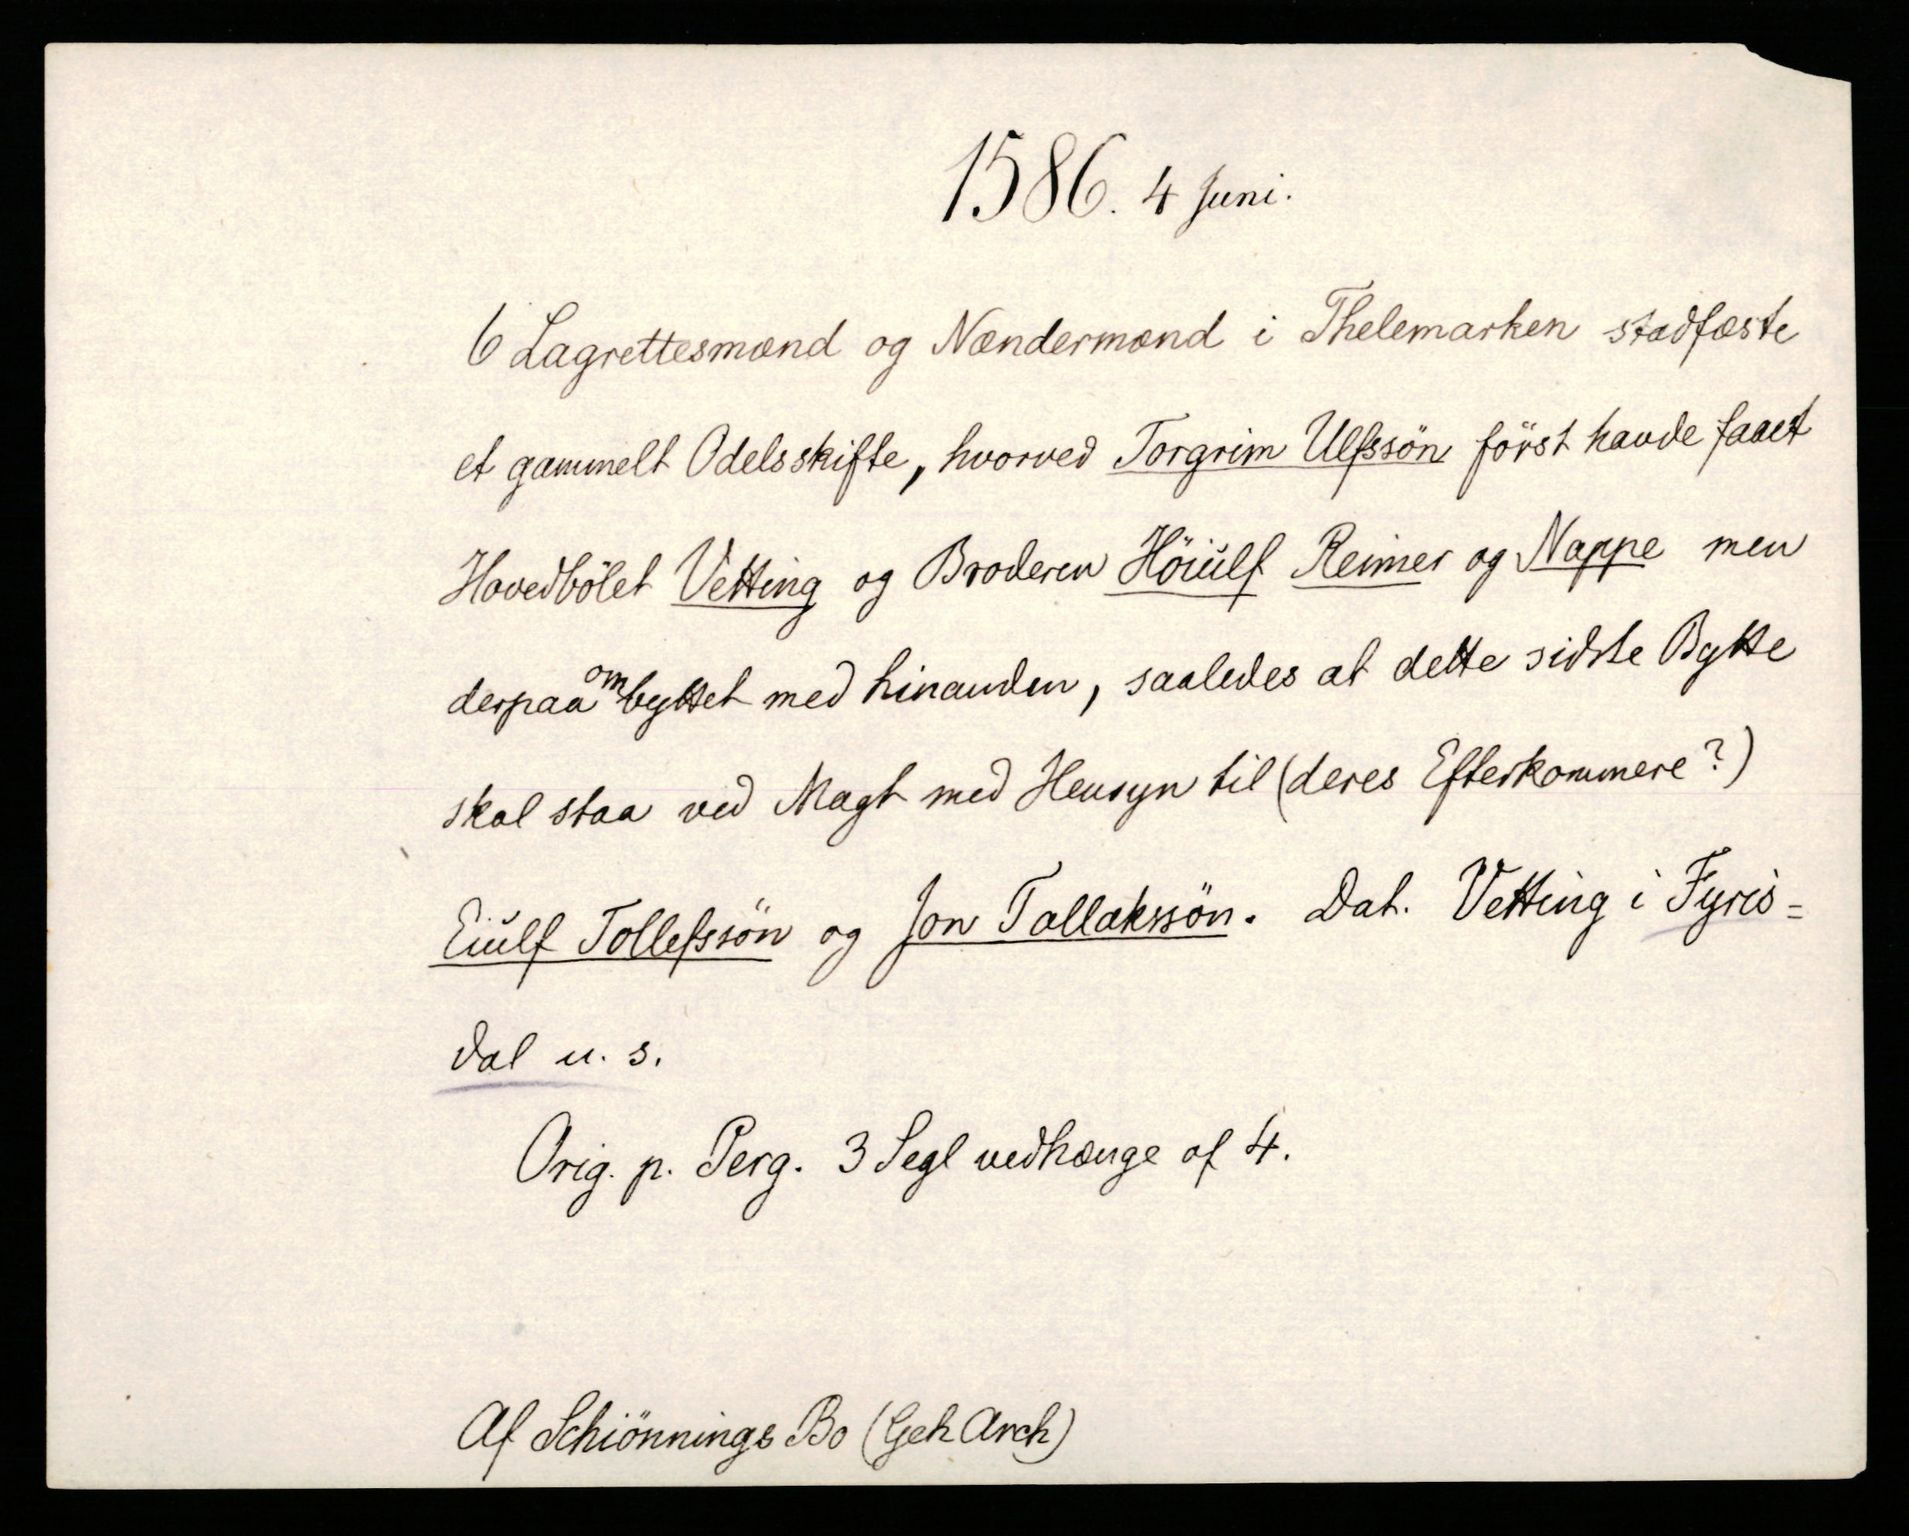 1586. 4 Juni.
6 Lagrettesmænd og Nændermænd i Thelemarken stadfæste
et gammelt Odelsskifte, hvorved Torgrim Ulfssön först havde faaet
Hovedbölet Vetting og Broderen Höiulf Reimer og Nappe men
derpaa ombyttet med hinanden, saaledes at dette sidste Bytte
skal staa ved Magt med Hensyn til (deres Efterkommere?)
Eiulf Tollefssön og Jon Tallakssön. Dat. Vetting i Fyris=
dal u. s.
Orig. p. Perg. 3 Segl vedhænge af 4.
Af Schiönnings Bo (Geh Arch)